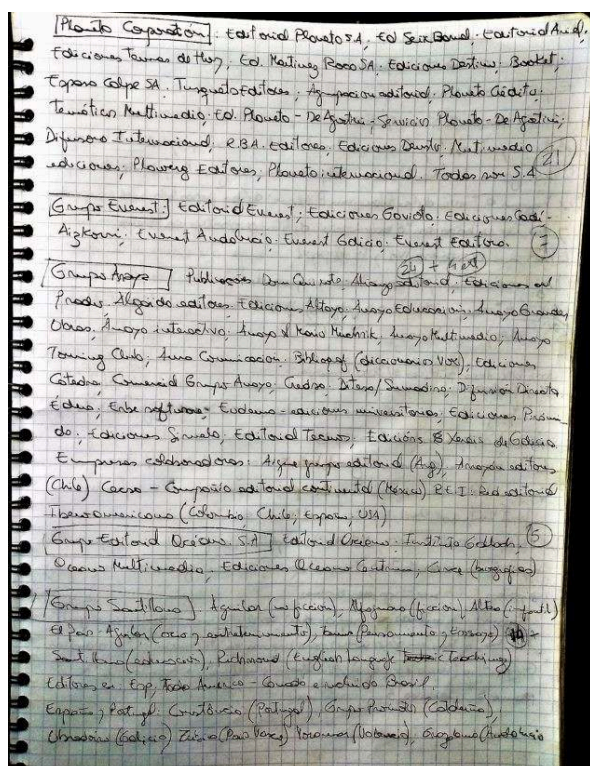 Planeta Corporation. Editorial Planeta S.A, Ed Seix Barral. Editorial Ariel.
Ediciones Temas de Hoy, Ed. Martínez Roca SA. Ediciones Destino; Booket;
Espasa Calpe SA. Tusquets Editores; Agrupacion editorial. Planeta Crédito;
Temáticos Multimedia; Ed. Planeta - De Agostini - Servicios Planeta - De Agostini;
Difusora Internacional, R.B.A. Editores, Ediciones Deusto. Multimedia
ediciones; Editores; Planeta internacional. Todas son S.A 21
Grupo Everest. Editorial Everest; Ediciones Gaviota. Ediciones
Aizkorri. Everest Andalucia. Everest Galicia. Everest Editora. 7
24 + 4 ext
Grupo Anaya Publicações Dom Quixote. Alianza editorial, Ediciones del
Prado, Algaida editores. Ediciones Altaya, Anaya Educación, Anaya Grandes
Obras. Anaya interactiva. Anaya & Mario Muchnik, Anaya Multimedia, Anaya
Touring Club; Aura Comunicacion. Biblograf (diccionarios Vox), Ediciones
Cátedra, Comercial Grupo Anaya, Credsa. Difusión Directa
Édera. Erbe software; Eudema - ediciones universitarias, Ediciones Pirámi-
de, Ediciones Siruela, Editorial Tecnos, Edicións Xerais de Galicia
Empresas colaboradoras: Aique grupo editorial (Arg), Arrayán editores
(Chile) Cecsa - Compañia editorial continental (México) R.E.I. Red editorial
Iberoamericana (Colombia, Chile, España, USA)
Grupo Editorial Océano. S.A Editorial Océano. Instituto Gallach, 5
Oceano Multimedia, Ediciones Oceano Centrum, Circe (biografias)
Grupo Santillana. Aguilar (no ficcion), Alfaguara (ficcion) Altea (infantil)
El País-Aguilar (ocio y entretenimiento), Taurus (Pensamiento y Ensayo)
Santillana (educacion), Richmond (English language Teaching)
Editoras en Esp, Toda America - Canadá e incluido Brasil
España y Portugal. Constância (Portugal), Grup Promotor (Cataluña),
Obradoiro (Galicia) Zubia (País Vasco) Voramar (Valencia), Grazalema (Andalucia